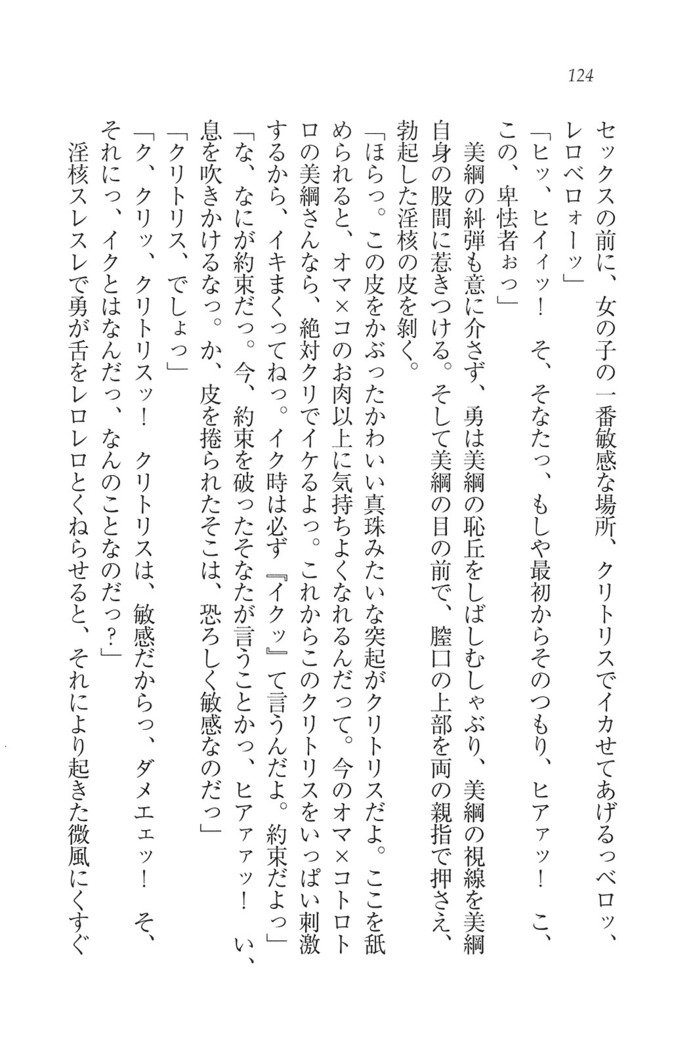 124
セックスの前に、女の子の一番敏感な場所、クリトリスでイカせてあげるっベロッ、
レロベロォーッ」
「ヒッ、ヒイィッ！　そ、そなたっ、もしや最初からそのつもり、ヒアァッ！　こ、
この、卑怯者ぉっ」
美綱の糾弾も意に介さず、勇は美綱の恥丘をしばしむしゃぶり、美綱の視線を美綱
自身の股間に惹きつける。そして美綱の目の前で、膣口の上部を両の親指で押さえ、
勃起した淫核の皮を剝く。
「ほらっ。この皮をかぶったかわいい真珠みたいな突起がクリトリスだよ。ここを舐
められると、オマ×コのお肉以上に気持ちよくなれるんだって。今のオマ×コトロト
ロの美綱さんなら、絶対クリでイケるよっ。これからこのクリトリスをいっぱい刺激
するから、イキまくってねっ。イク時は必ず『イクッ』て言うんだよ。約束だよっ」
「な、なにが約束だっ。今、約束を破ったそなたが言うことかっ、ヒアァァッ！　い、
息を吹きかけるなっ。か、皮を捲られたそこは、恐ろしく敏感なのだっ」
「クリトリス、でしょっ」
「ク、クリッ、クリトリスッ！　クリトリスは、敏感だからっ、ダメエェッ！　そ、
それにっ、イクとはなんだっ、なんのことなのだっ？」
淫核スレスレで勇が舌をレロレロとくねらせると、それにより起きた微風にくすぐ